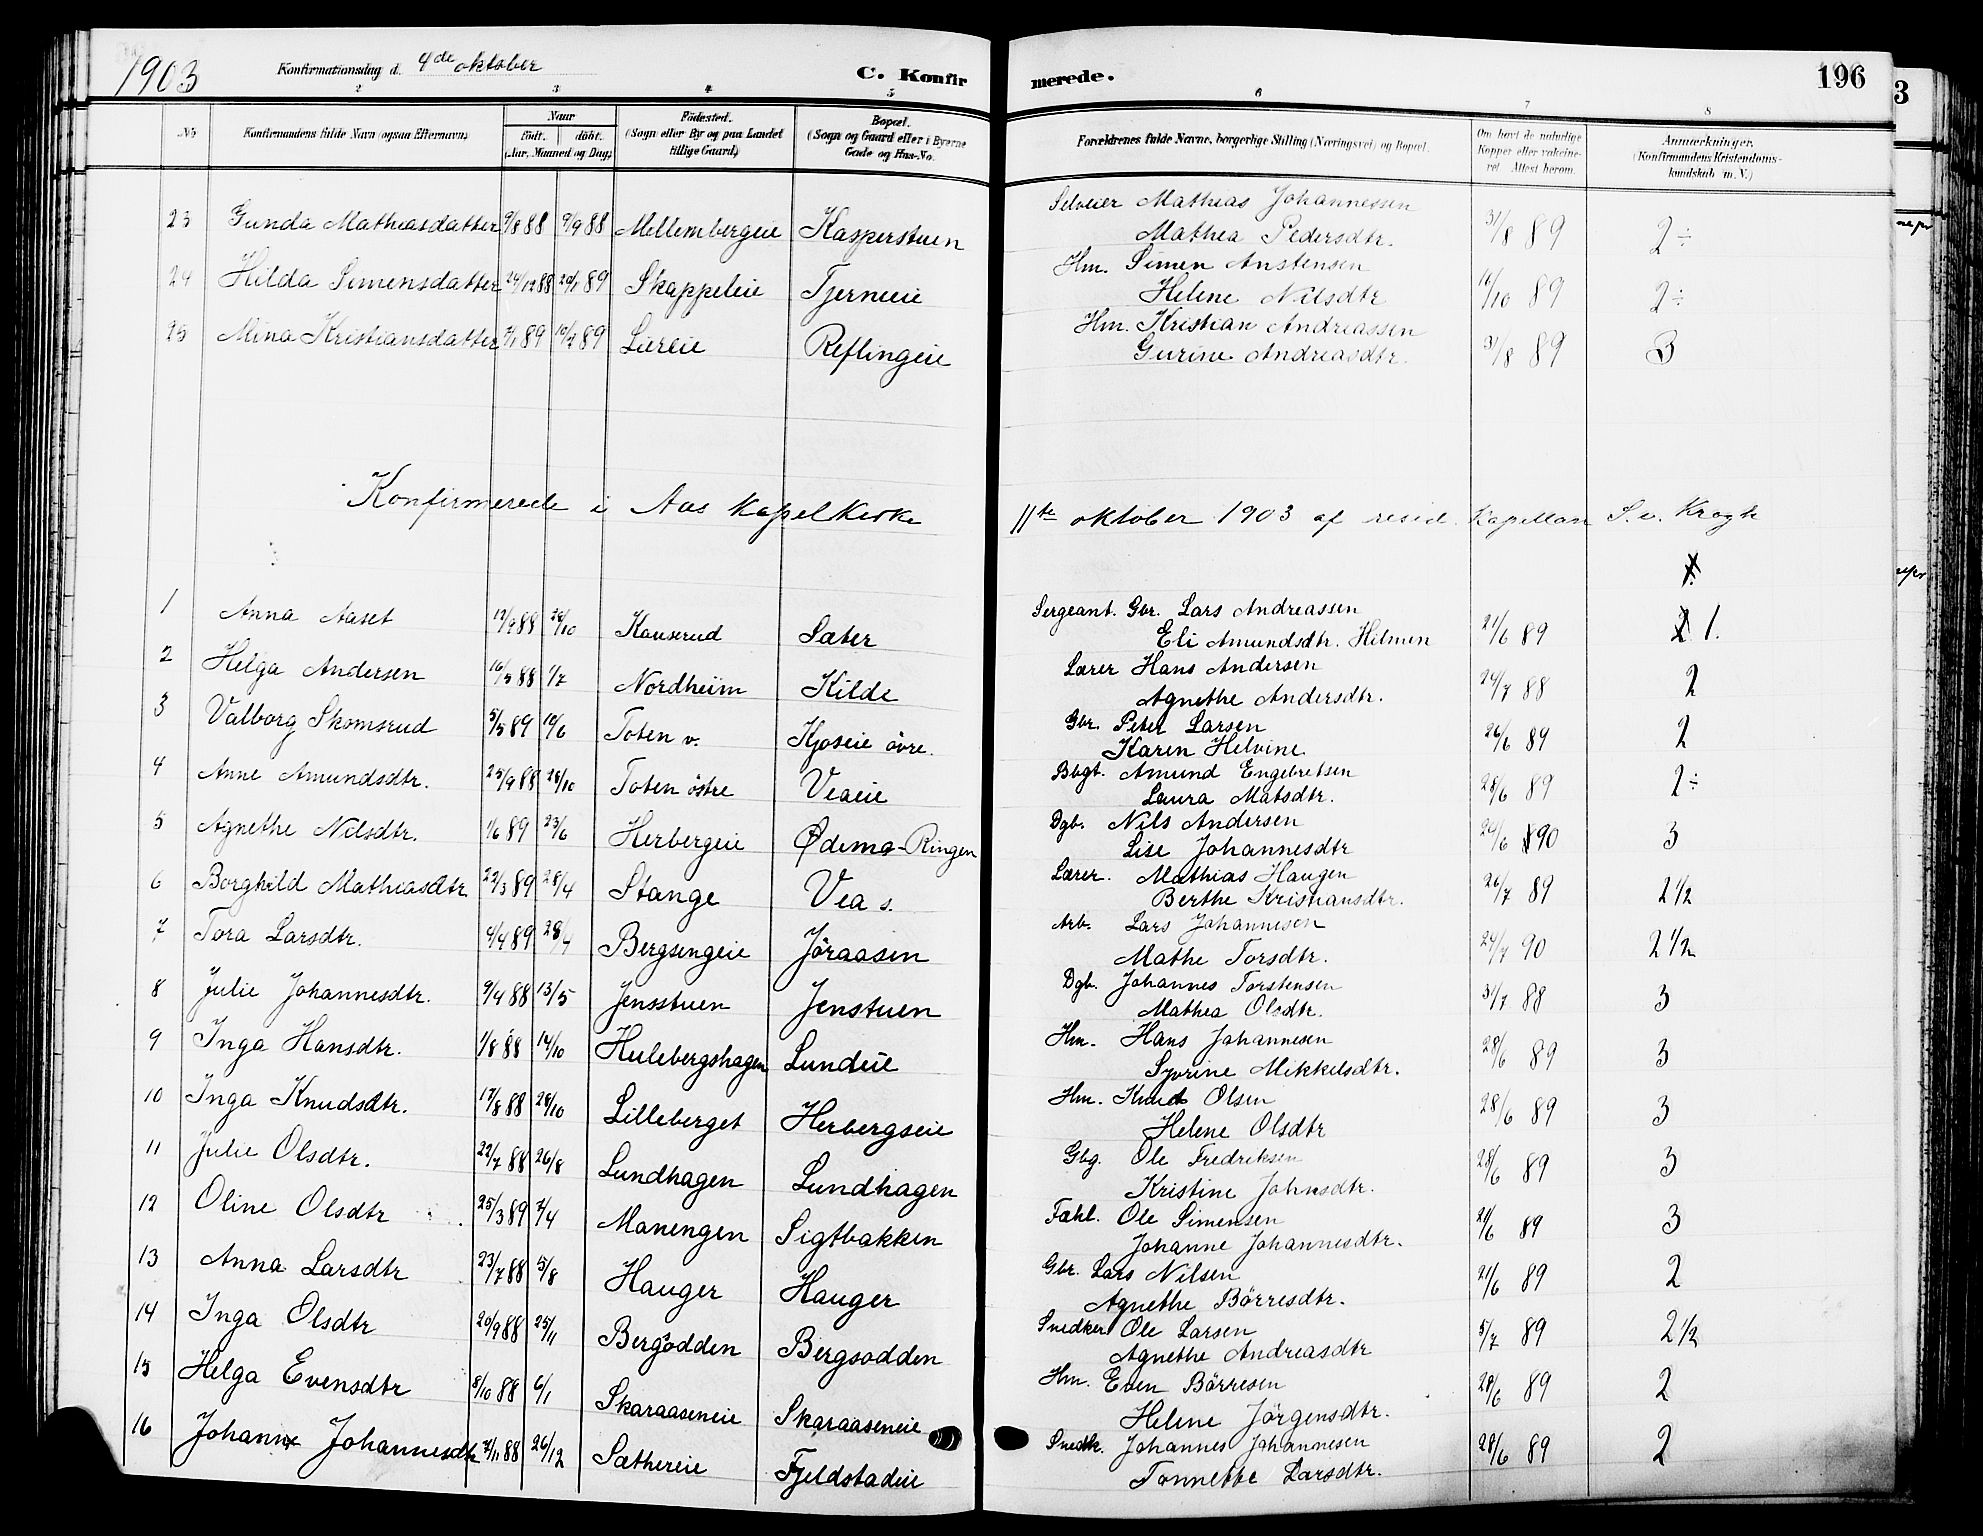 1903 Konfirmationsdag d. 4de oktober C. Konfirmerede. 196
2 3 4 5 6 7 8
No Konfirmandens fulde Navn (ogsaa Efternavn) Naar født. døbt. (Aar, Maaned og Dag) Fødested. (Sogn eller By og paa Landet tillige Gaard) Bopæl. (Sogn og Gaard eller i Byerne Gade og Hus-No. Forældrenes fulde Navne, borgerlige Stilling (Næringsvei) og Bopæl. Om havt de naturlige Kopper eller vakcineret. Attest herom. Anmærkninger. (Konfirmandens Kristendomskundskab m. V.)
23 Gunda Mathiasdatter 9/8 88 9/9 88 Mellembergeie Kasperstuen Selveier Mathias Johannessen 31/8 89 2÷
Mathea Pedersdtr.
24 Hilda Simensdatter 24/12 88 20/1 89 Skappeleie Tjerneie Hm. Simen Anstensen 16/10 89 2÷
Helene Nilsdtr
25 Mina Kristiansdatter 7/1 89 10/2 89 Liereie Reflingeie Hm. Kristian Andreassen 31/8 89 3
Gurine Andreasdtr.
Konfirmerede i Aas Kapelkirke 11te oktober 1903 af resid. Kapellan S. v. Krogh
1 Anna Aaset 12/9 88 28/10 Kauserud Sæter Sergeant. Gbr. Lars Andreassen 21/6 89 1.
Eli Amundsdtr. Hilmen
2 Helga Andersen 16/5 88 1/7 Nordheim Kilde Lærer Hans Andersen 24/7 88 2
Agnethe Andersdtr.
3 Valborg Skomsrud 5/5 89 10/6 Toten v. Kjoseie øvre. Gbr. Peter Larsen 26/6 89 2
Karen Helvine
4 Anne Amundsdtr. 25/9 88 28/10 Toten østre Veaeie Bbgt. Amund Engebretsen 28/6 89 2÷
Laura Matsdtr.
5 Agnethe Nilsdtr. 1/6 89 23/6 Herbergeie Ødema-Ringen Dgb. Nils Andersen 20/6 90 3
Lise Johannesdtr
6 Borghild Mathiasdtr 22/3 89 28/4 Stange Vea s. Lærer. Mathias Haugen 26/7 89 2 1/2
Berthe Kristiansdtr.
7 Tora Larsdtr. 4/4 89 28/4 Bergsengeie Jøraasen Arb. Lars Johannesen 24/7 90 2 1/2
Mathe Torsdtr.
8 Julie Johannesdtr. 9/4 88 13/5 Jensstuen Jenstuen Dgb. Johannes Torstensen 31/7 88 3
Mathea Olsdtr.
9 Inga Hansdtr. 1/8 88 14/10 Hulebergshagen Lundeie Hm. Hans Johannesen 28/6 89 3
Syverine Mikkelsdtr.
10 Inga Knudsdtr. 17/8 88 28/10 Lilleberget Herbergseie Hm. Knud Olsen 28/6 89 3
Helene Olsdtr
11 Julie Olsdtr. 22/7 88 26/8 Lundhagen Lundhagen Gbg. Ole Fredriksen 28/6 89 3
Kristine Johnsdtr.
12 Oline Olsdtr 25/3 89 7/4 Manengen Sigtbakken Fæhl. Ole Simensen 21/6 89 3
Johanne Johannesdtr.
13 Anna Larsdtr 23/7 88 5/8 Hauger Hauger Gbr. Lars Nilsen 21/6 89 2
Agnethe Børresdtr.
14 Inga Olsdtr 20/9 88 25/11 Bergødden Bergsodden Snedker Ole Larsen 5/7 89 2 1/2
Agnethe Andreasdtr
15 Helga Evensdtr 8/10 88 6/1 Skaraaseneie Skaraaseneie Hm. Even Børresen 28/6 89 2
Helene Jørgensdtr.
16 Johanne Johannesdtr 7/11 88 26/12 Sæthereie Fjeldstadeie Snedk. Johannes Johannesen 28/6 89 2
Tonnette Larsdtr.